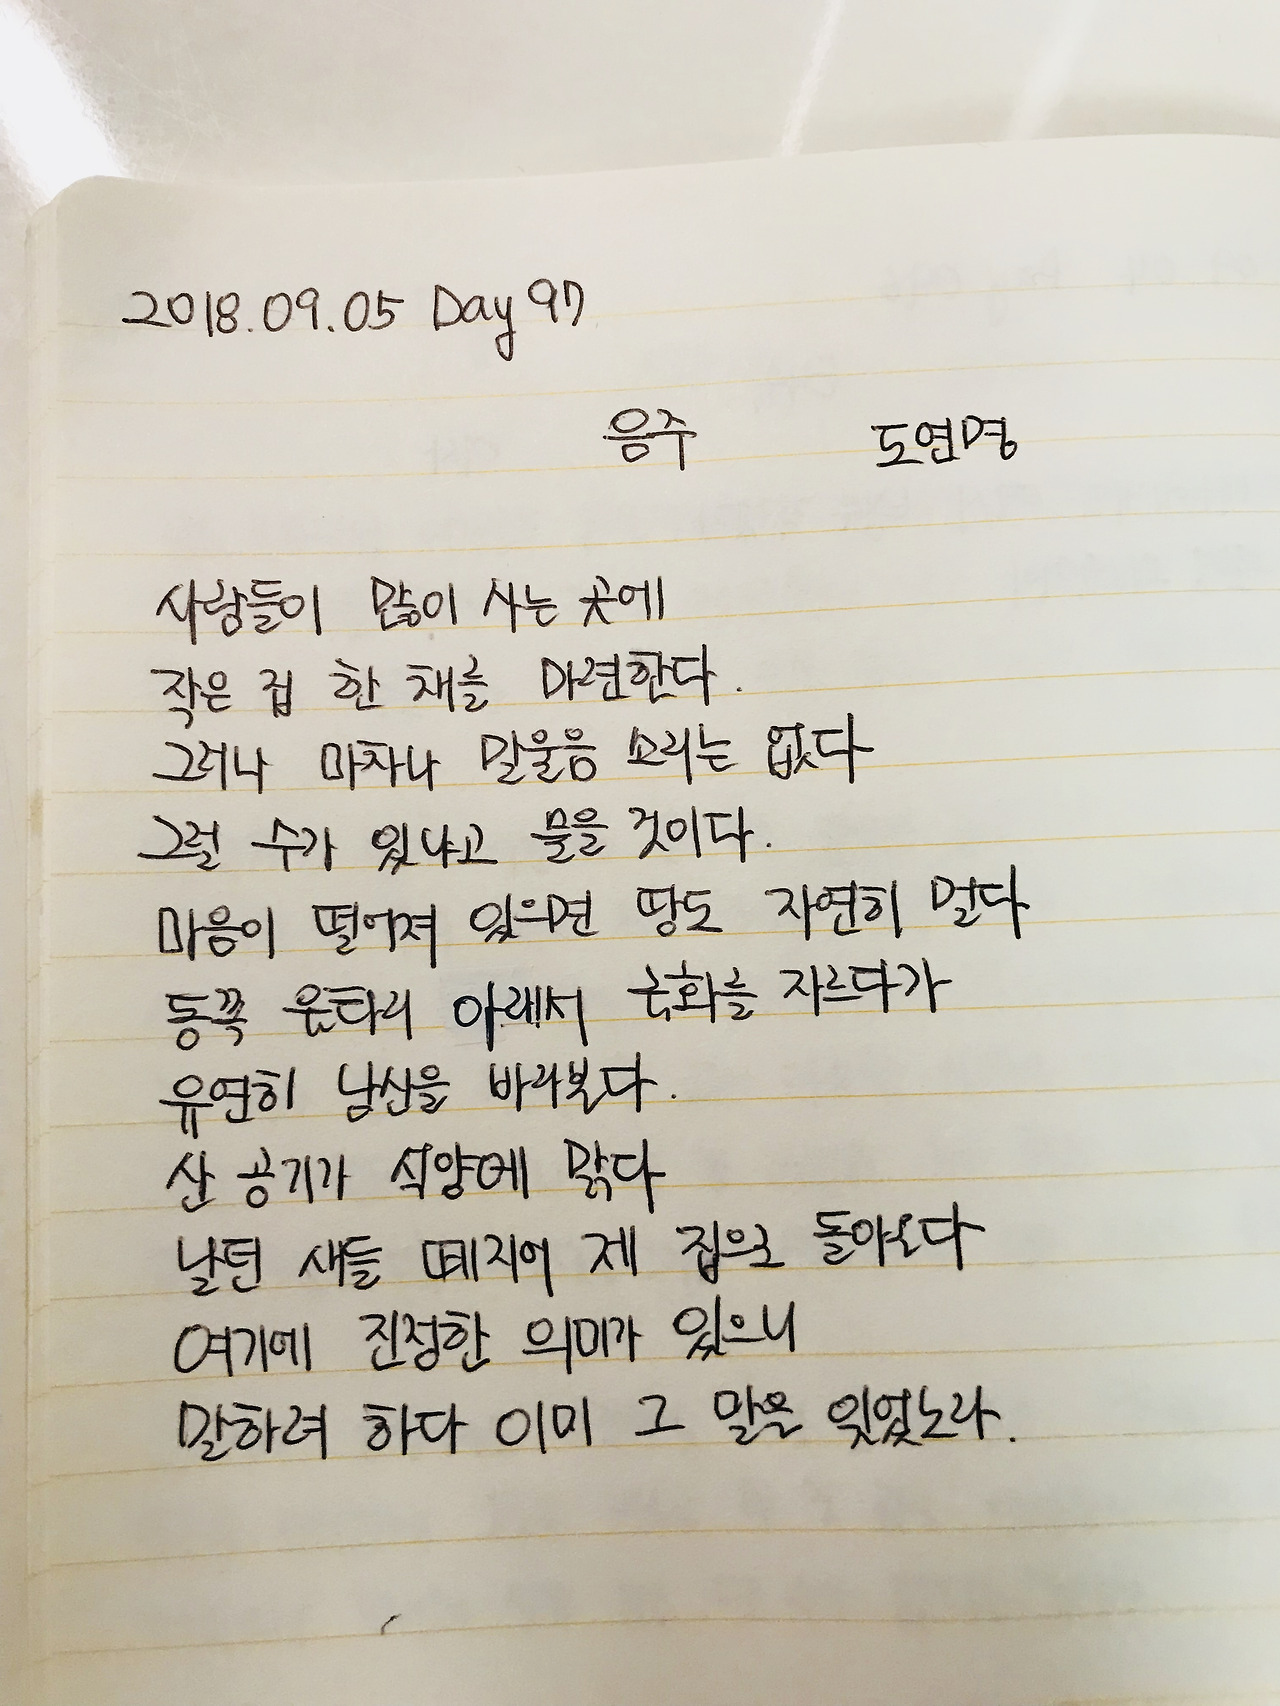 2018.09.05 Day 97
음주 도연명
사람들이 많이 사는 곳에
작은 집 한 채를 마련한다.
그러나 마차나 말울음 소리는 없다
그럴 수가 있냐고 물을 것이다.
마음이 떨어져 있으면 땅도 자연히 멀다
동쪽 울타리 아래서 국화를 자르다가
유연히 남산을 바라본다.
산 공기가 석양에 맑다
날던 새들 떼지어 제 집으로 돌아온다
여기에 진정한 의미가 있으니
말하려 하다 이미 그 말을 잊었노라.